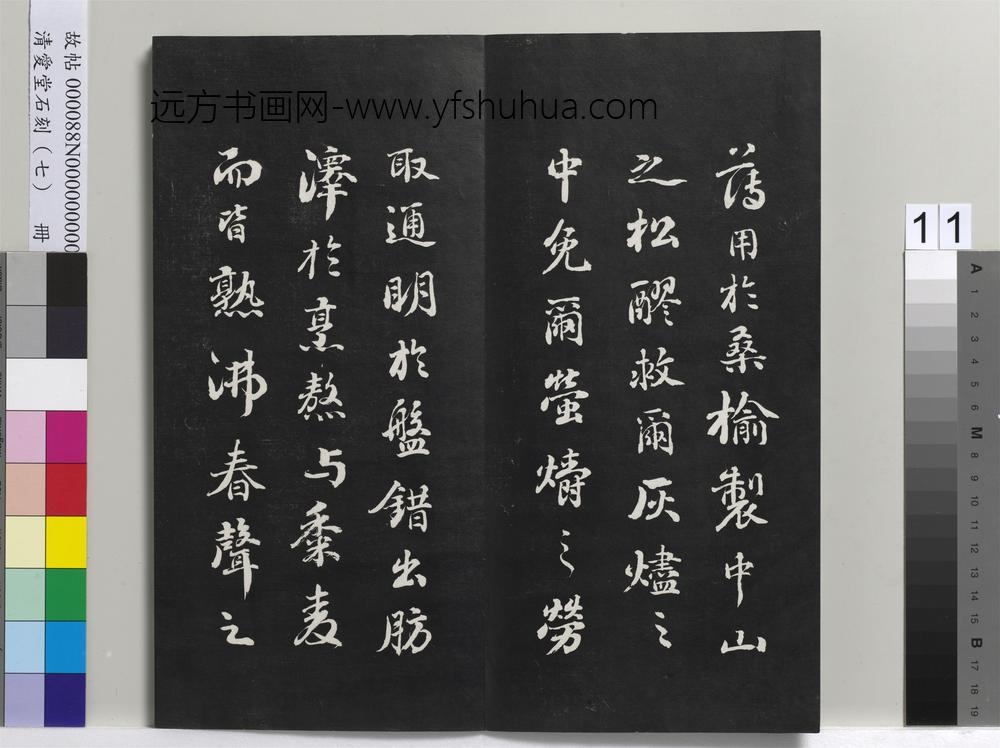 薄用於桑榆製中山
之松醪救爾灰燼之
中免爾螢爝之勞
取通明於盤錯出肪
澤於烹熬与黍麦
而皆熟沸舂聲之
远方书画网-www.yfshuhua.com
故帖 000088N00000000
清愛堂石刻（七） 冊
11
A 1 2 3 4 5 6 M 8 9 10 11 12 13 14 15 B 17 18 19